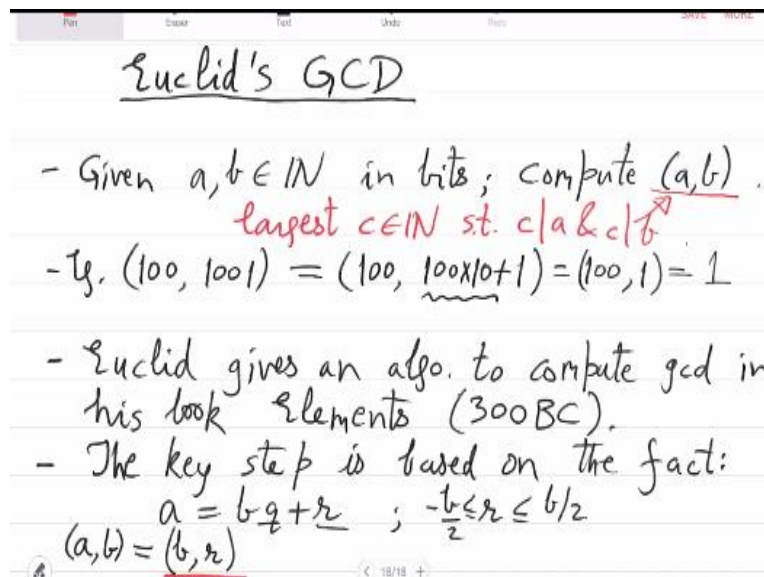 Pen Eraser Text Undo Redo SAVE MORE
Euclid's GCD
- Given a,b ∈ ℕ in bits; compute (a,b).
largest c∈ℕ s.t. c|a & c|b
- Eg. (100, 1001) = (100, 100x10+1) = (100,1) = 1
- Euclid gives an algo. to compute gcd in
his book Elements (300BC).
- The key step is based on the fact:
a = bq + r ; -b/2 ≤ r ≤ b/2
(a,b) = (b,r)
< 18/18 +